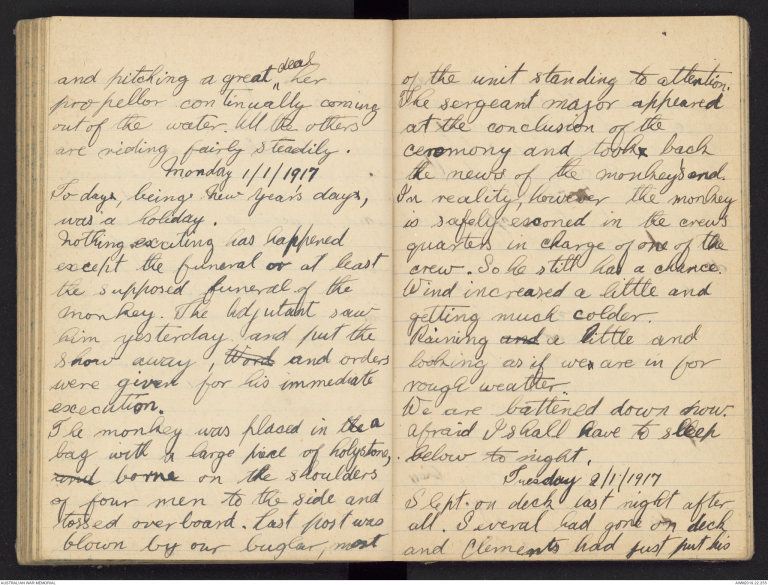 and pitching a great deal, her
propellor continually coming
out of the water. All the others
are riding fairly steadily.
Monday 1/1/1917
To day, being New Year's day,
was a holiday.
Nothing exciting has happened
except the funeral or at least
the supposed funeral of the
monkey. The Adjutant saw
him yesterday and put the
show away, Word and orders
were given for his immediate
execution.
The monkey was placed in the a
bag with a large piece of holystone,
and borne on the shoulders
of four men to the side and
tossed overboard. Last post was
blown by our buglar, most
of the unit standing to attention.
The sergeant major appeared
at the conclusion of the
ceremony and took back
the news of the monkey's end.
In reality, however the monkey
is safely esconed in the crews
quarters in charge of one of the
crew. So he still has a chance.
Wind increased a little and
getting much colder.
Raining and a little and
looking as if we are in for
rough weather
We are battened down now.
Afraid I shall have to sleep
below to night.
Tuesday 2/1/1917
Slept on deck last night after
all. Several had gone on deck
and Clements had just put his
AUSTRALIAN WAR MEMORIAL